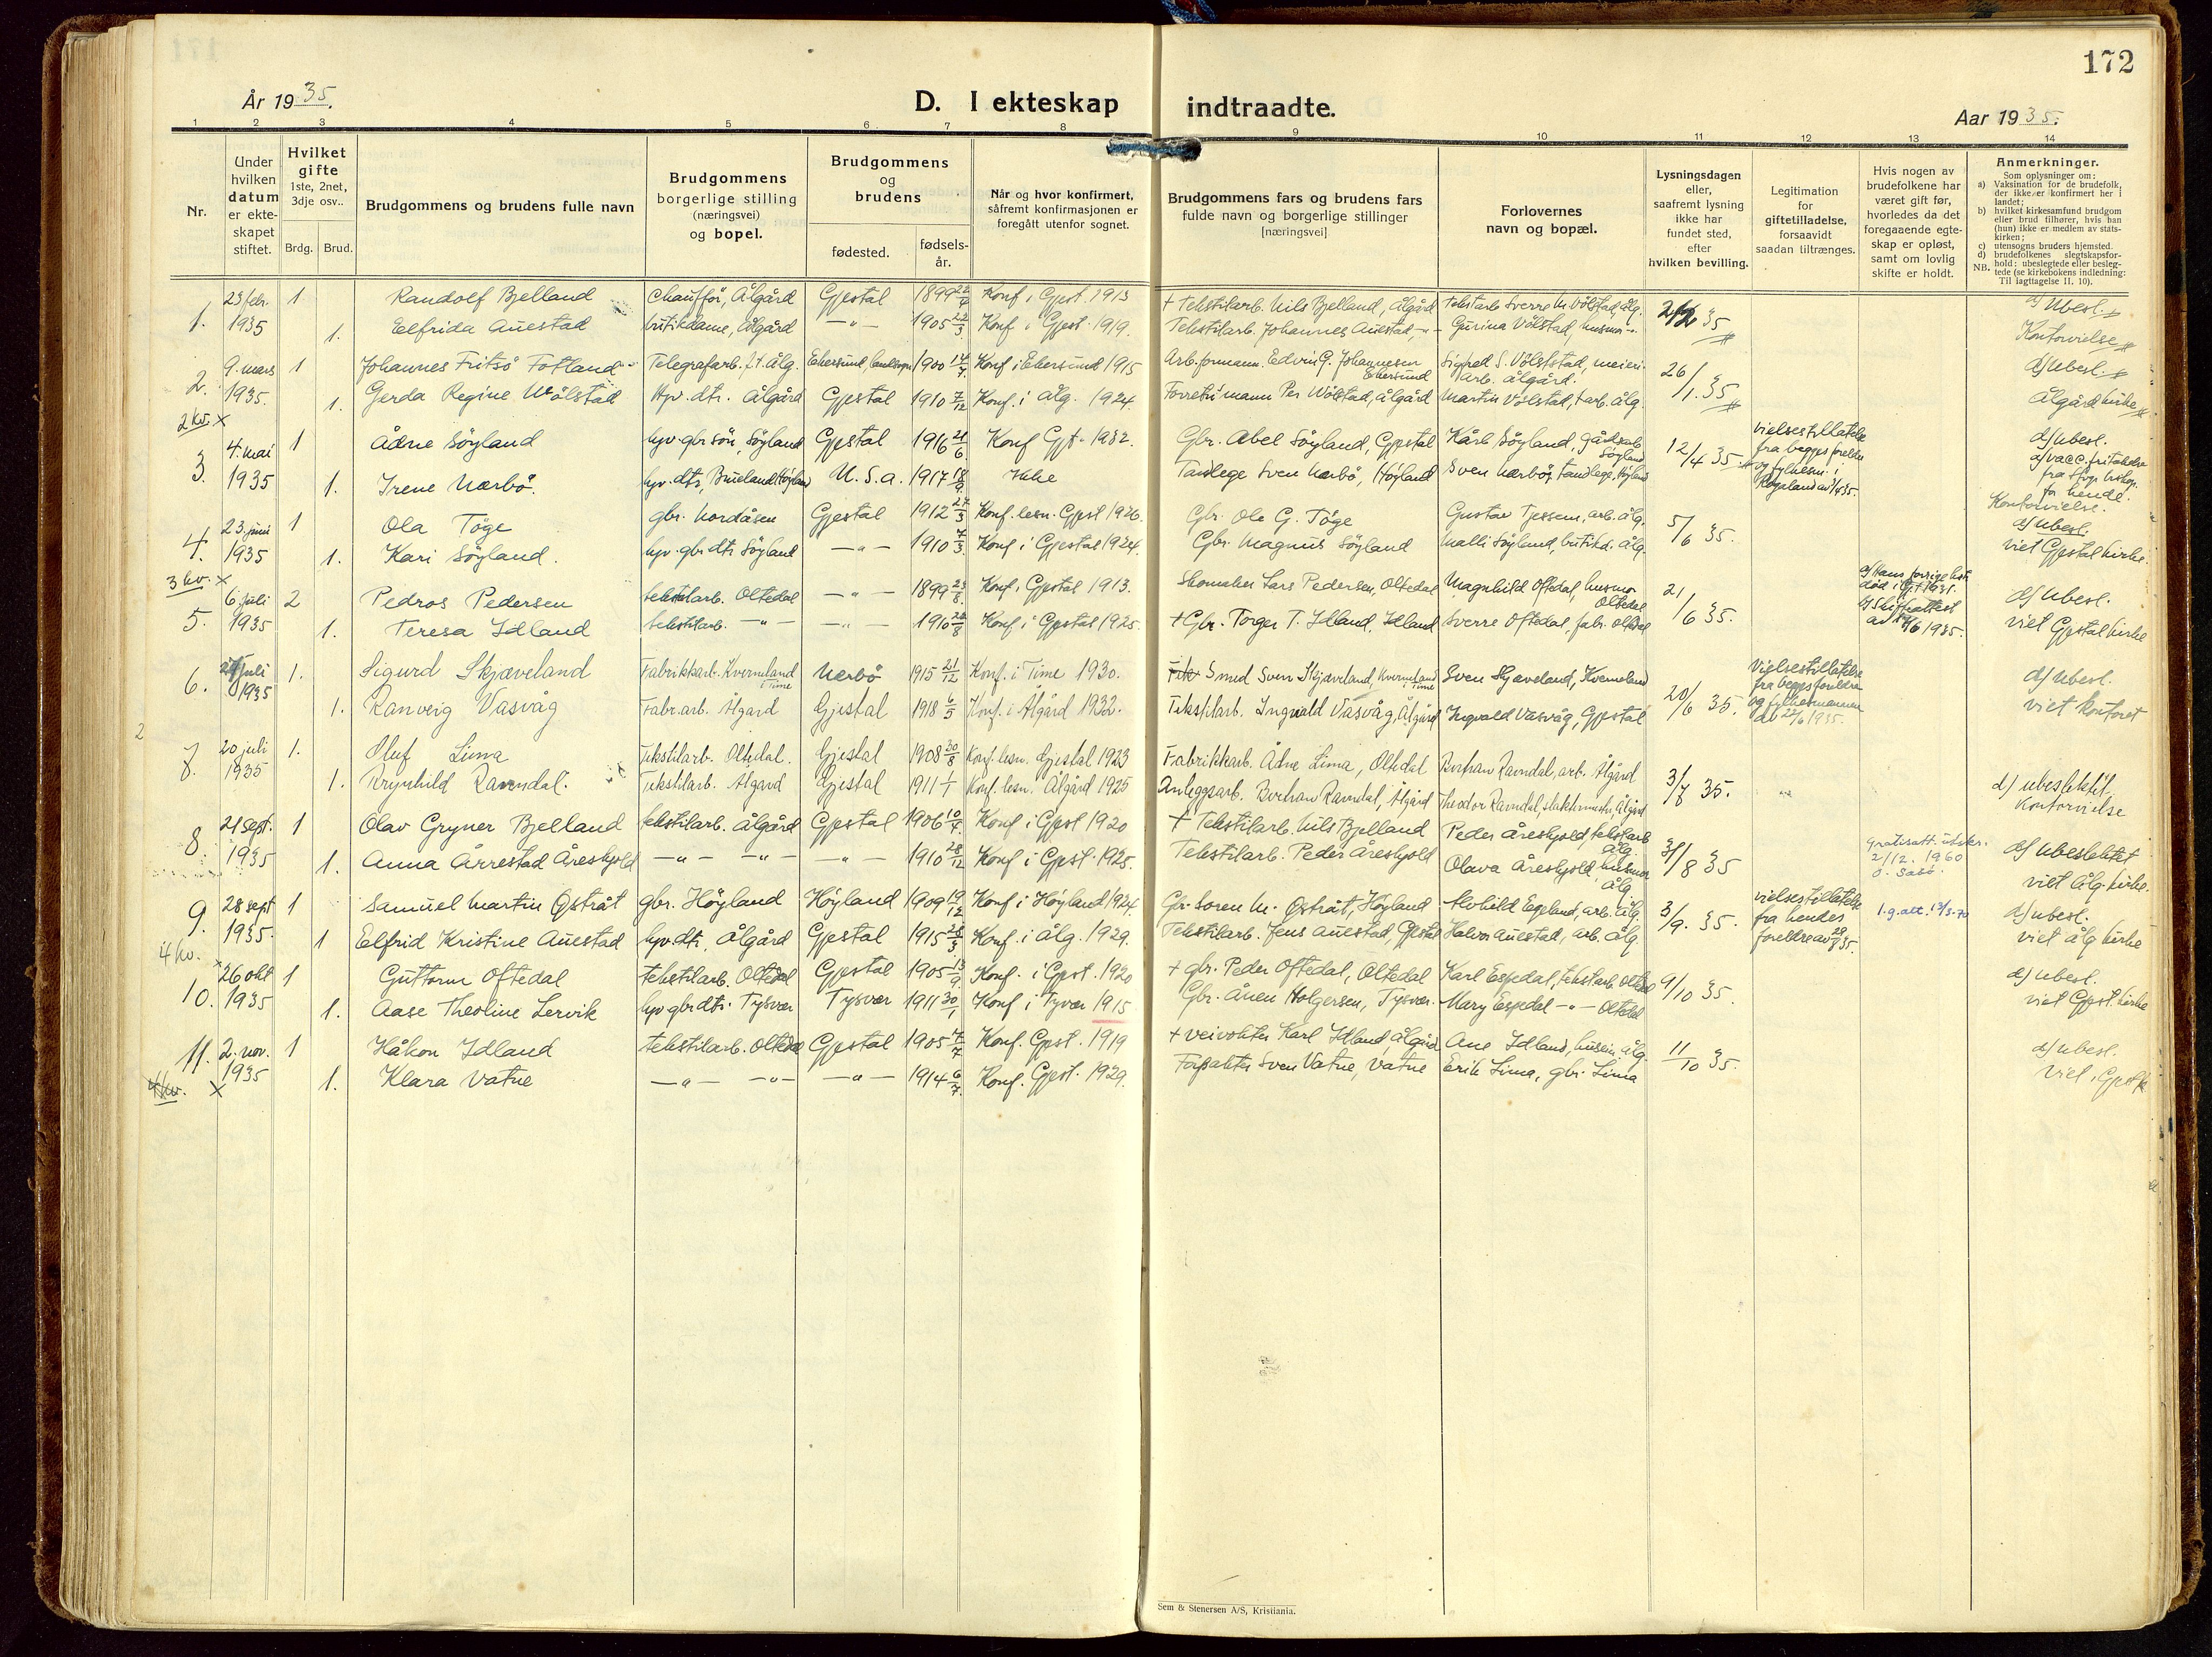 172
År 1935.
D. I ekteskap indtraadte.
Aar 1935.
1 2 3 4 5 6 7 8 9 10 11 12 13 14
Nr.
Under hvilken datum er ekte-skapet stiftet.
Hvilket gifte 1ste, 2net, 3dje osv..
Brdg. Brud.
Brudgommens og brudens fulle navn
Brudgommens borgerlige stilling (næringsvei) og bopel.
Brudgommens og brudens
fødested.
fødsels-år.
Når og hvor konfirmert, såfremt konfirmasjonen er foregått utenfor sognet.
Brudgommens fars og brudens fars fulde navn og borgerlige stillinger [næringsvei]
Forlovernes navn og bopæl.
Lysningsdagen eller, saafremt lysning ikke har fundet sted, efter hvilken bevilling.
Legitimation for giftetilladelse, forsaavidt saadan tiltrænges.
Hvis nogen av brudefolkene har været gift før, hvorledes da det foregaaende egte-skap er opløst, samt om lovlig skifte er holdt.
Anmerkninger.
Som oplysninger om:
a) Vaksination for de brudefolk, der ikke er konfirmert her i landet;
b) hvilket kirkesamfund brudgom eller brud tilhører, hvis han (hun) ikke er medlem av stats-kirken;
c) utensogns bruders hjemsted.
d) brudefolkenes slegtskapsfor-hold: ubeslegtede eller besleg-tede (se kirkebokens indledning: Til Iagttagelse II. 10).
NB.
1. 23 febr. 1935 1 Randolf Bjelland Chauffør, Ålgård Gjestal 1899 22/7 Konf. i Gjest. 1913 + Tekstilarb. Nils Bjelland, Ålgård Tekstarb Sverre M. Völstad, Ålg. 2/2 35 d) Ubesl.
1. Elfrida Auestad butikdame, Ålgård —"— 1905 22/3 Konf. i Gjest. 1919. Tekstilarb. Johannes Auestad —"— Gurina Völstad, husmor —"— Kontorvielse
2. 9. mars 1935. 1 Johannes Fritsö Fotland Telegrafarb. f.t. Ålg. Ekersund landsogn 1900 14/7 Konf i Ekersund 1915 Arb.formann. Edvin G. Johannesen Ekersund Sigfred S. Völstad, meieri-arb. Ålgård. 26/1. 35 d) Ubesl.
1. Gerda Regine Wölstad Hjv. dtr. Ålgård Gjestal 1910 7/12 Konf. i Ålg. 1924. Forretn.mann Per Wölstad, Ålgård Martin Völstad, t.arb. Ålg. Ålgård kirke
2 kv. x
3. 4. mai 1935 1 Ådne Söyland hjv. gbr sön, Söyland Gjestal 1916 21/6 Konf Gjt. 1932. Gbr. Abel Söyland, Gjestal Kåre Söyland, gårdsarb Söyland 12/4 35 vielsestillatelse fra begges foreldre og fylkesm. i Rogaland d) ubesl.
1. Irene Nærbö. hjv. dtr, Brueland Höyland U.S.a. 1917 18/9 Ikke Tandlege Sven Nærbö, Höyland Sven Nærbö, tandlege, Höyland a) vacc. fritakelse fra biskop. for hende. Kontorvielse.
4. 23 juni 1935 1 Ola Töge gbr. Nordåsen Gjestal 1912 27/3 Konf. lesn. Gjest 1926. Gbr. Ole G. Töge Gustav Tjessem, arb. Ålg. 5/6 35. d) Ubesl.
1. Kari Söyland. hjv. gbr dtr Söyland —"— 1910 7/3. Konf i Gjestal 1924. Gbr. Magnus Söyland Malli Söyland, butikd. Ålg. viet Gjestal kirke.
3 kv. x
5. 6 juli 1935 2 Pedros Pedersen tekstilarb. Oltedal —"— 1899 23/8. Konf. i Gjestal 1913. Skomaker Lars Pedersen, Oltedal Magnhild Oftedal, husmor Oltedal 21/6 35. a) Hans forrige hustr. død 1931. b) Skifteattest av 1935. d) Ubesl.
1. Teresa Idland tekstilarb. —"— —"— 1910 22/8 Konf i Gjestal 1925. + Gbr. Torger T. Idland, Idland Sverre Oftedal, fabr. Oltedal viet Gjestal kirke
6. juli 1935 1. Sigurd Skjæveland Fabrikkarb. Kverneland Time Nærbö 1915 21/12 Konf. i Time 1930. Smed Sven Skjæveland, Kverneland Time Sven Skjæveland, Kverneland 20/6 35. Vielsestillatelse fra begges foreldre og fylkesmannen av 22/6 1935. d) Ubesl.
1. Ranveig Vasvåg Fabr.arb. Ålgård Gjestal 1918 6/5 Konf. i Ålgård 1932. Tekstilarb. Ingvald Vasvåg, Ålgård Ingvald Vasvåg, Gjestal viet kontoret
7. 20 juli 1935 1. Oluf Lima Tekstilarb. Oltedal. Gjestal 1908 30/8 Konf. lesn. Gjestal 1923 Fabrikkarb. Ådne Lima, Oltedal Berhan Ravndal, arb. Ålgård 3/7 35. d) ubeslektet.
1. Brynhild Ravndal. Tekstilarb. Ålgård Gjestal 1911 Konf. lesn. Ålgård 1925 Anleggsarb. Berhan Ravndal, Ålgård Theodor Ravndal, slaktermester, Ålgård Kontorvielse
8. 21 sept. 1935 1 Olav Gryner Bjelland tekstilarb. Ålgård Gjestal 1906 10/4. Konf i Gjest 1920 + Tekstilarb. Nils Bjelland Peder Åreskjold, tekstarb Ålg. 31/8 35 gratisatt. utskr. 2/12. 1960 d) Ubeslektet
1. Anna Årrestad Åreskjold —"— —"— —"— 1910 28/12 Konf i Gjest. 1925. Tekstilarb. Peder Åreskjold Olava Åreskjold husmor Ålg. viet Ålg. kirke.
9. 28 sept 1935. 1 Samuel Martin Østråt gbr. Höyland Höyland 1909 19/12 Konf i Höyland 1924. Gbr. Soren M. Østråt, Höyland Alvhild Egeland, arb. Ålg. 3/9. 35. vielsestillatelse fra hendes foreldre av 35. d) ubesl.
1 Elfrid Kristine Auestad hjv dtr. Ålgård Gjestal 1915 28/3 Konf. i Ålg. 1929. Tekstilarb. Jens Auestad, Gjestal Halvor Auestad, arb. Ålg viet Ålg kirke
4 kv. x
10. 26 okt 1935 1 Guttorm Oftedal tekstilarb. Oltedal Gjestal 1905 13/9. Konf. i Gjest. 1920 + gbr. Peder Oftedal, Oltedal Karl Espedal, tekstarb Oltedal 9/10 35. d) Ubesl.
1. Aase Theoline Lervik hjv gbr dtr. Tysvær Tysvær 1911 30/1 Konf i Tyvær 1915 Gbr. Ånen Holgersen, Tysvær. Mary Espedal —"— Oltedal viet Gjest. kirke
11. 2. nov. 1935 1 Håkon Idland tekstilarb. Oltedal Gjestal 1905 4/7 Konf. Gjest. 1919 + veivokter Karl Idland, Ålgård Ane Idland, husm. Ålg. 11/10 35. d) ubesl.
1. Klara Vatne —"— —"— —"— 1914 6/7. Konf. Gjest. 1929. Forpakter Sven Vatne, Vatne Erik Lima, gbr. Lima viet i Gjest k
4 kv. x
Sem & Stenersen A/S, Kristiania.